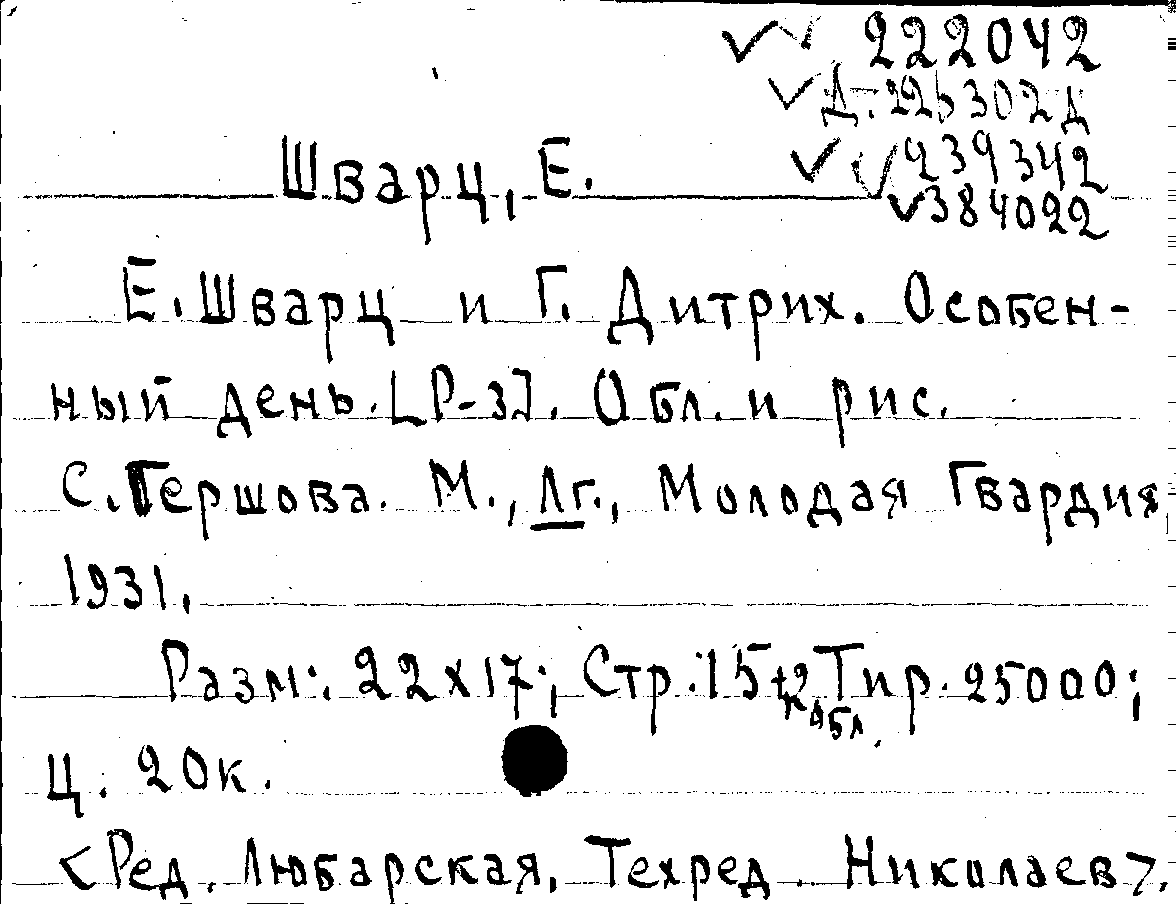 222042
Д. 225302д
Шварц, Е.
239342
384022
Е. Шварц и Г. Дитрих. Особен-
ный день. [Р-з]. Обл. и рис.
С. Гершова. М., Лг., Молодая Гвардия
1931.
Разм: 22х17; Стр: 15+2 Тир. 25000;
обл.
Ц. 20к.
<Ред. Любарская, Техред. Николаев>.